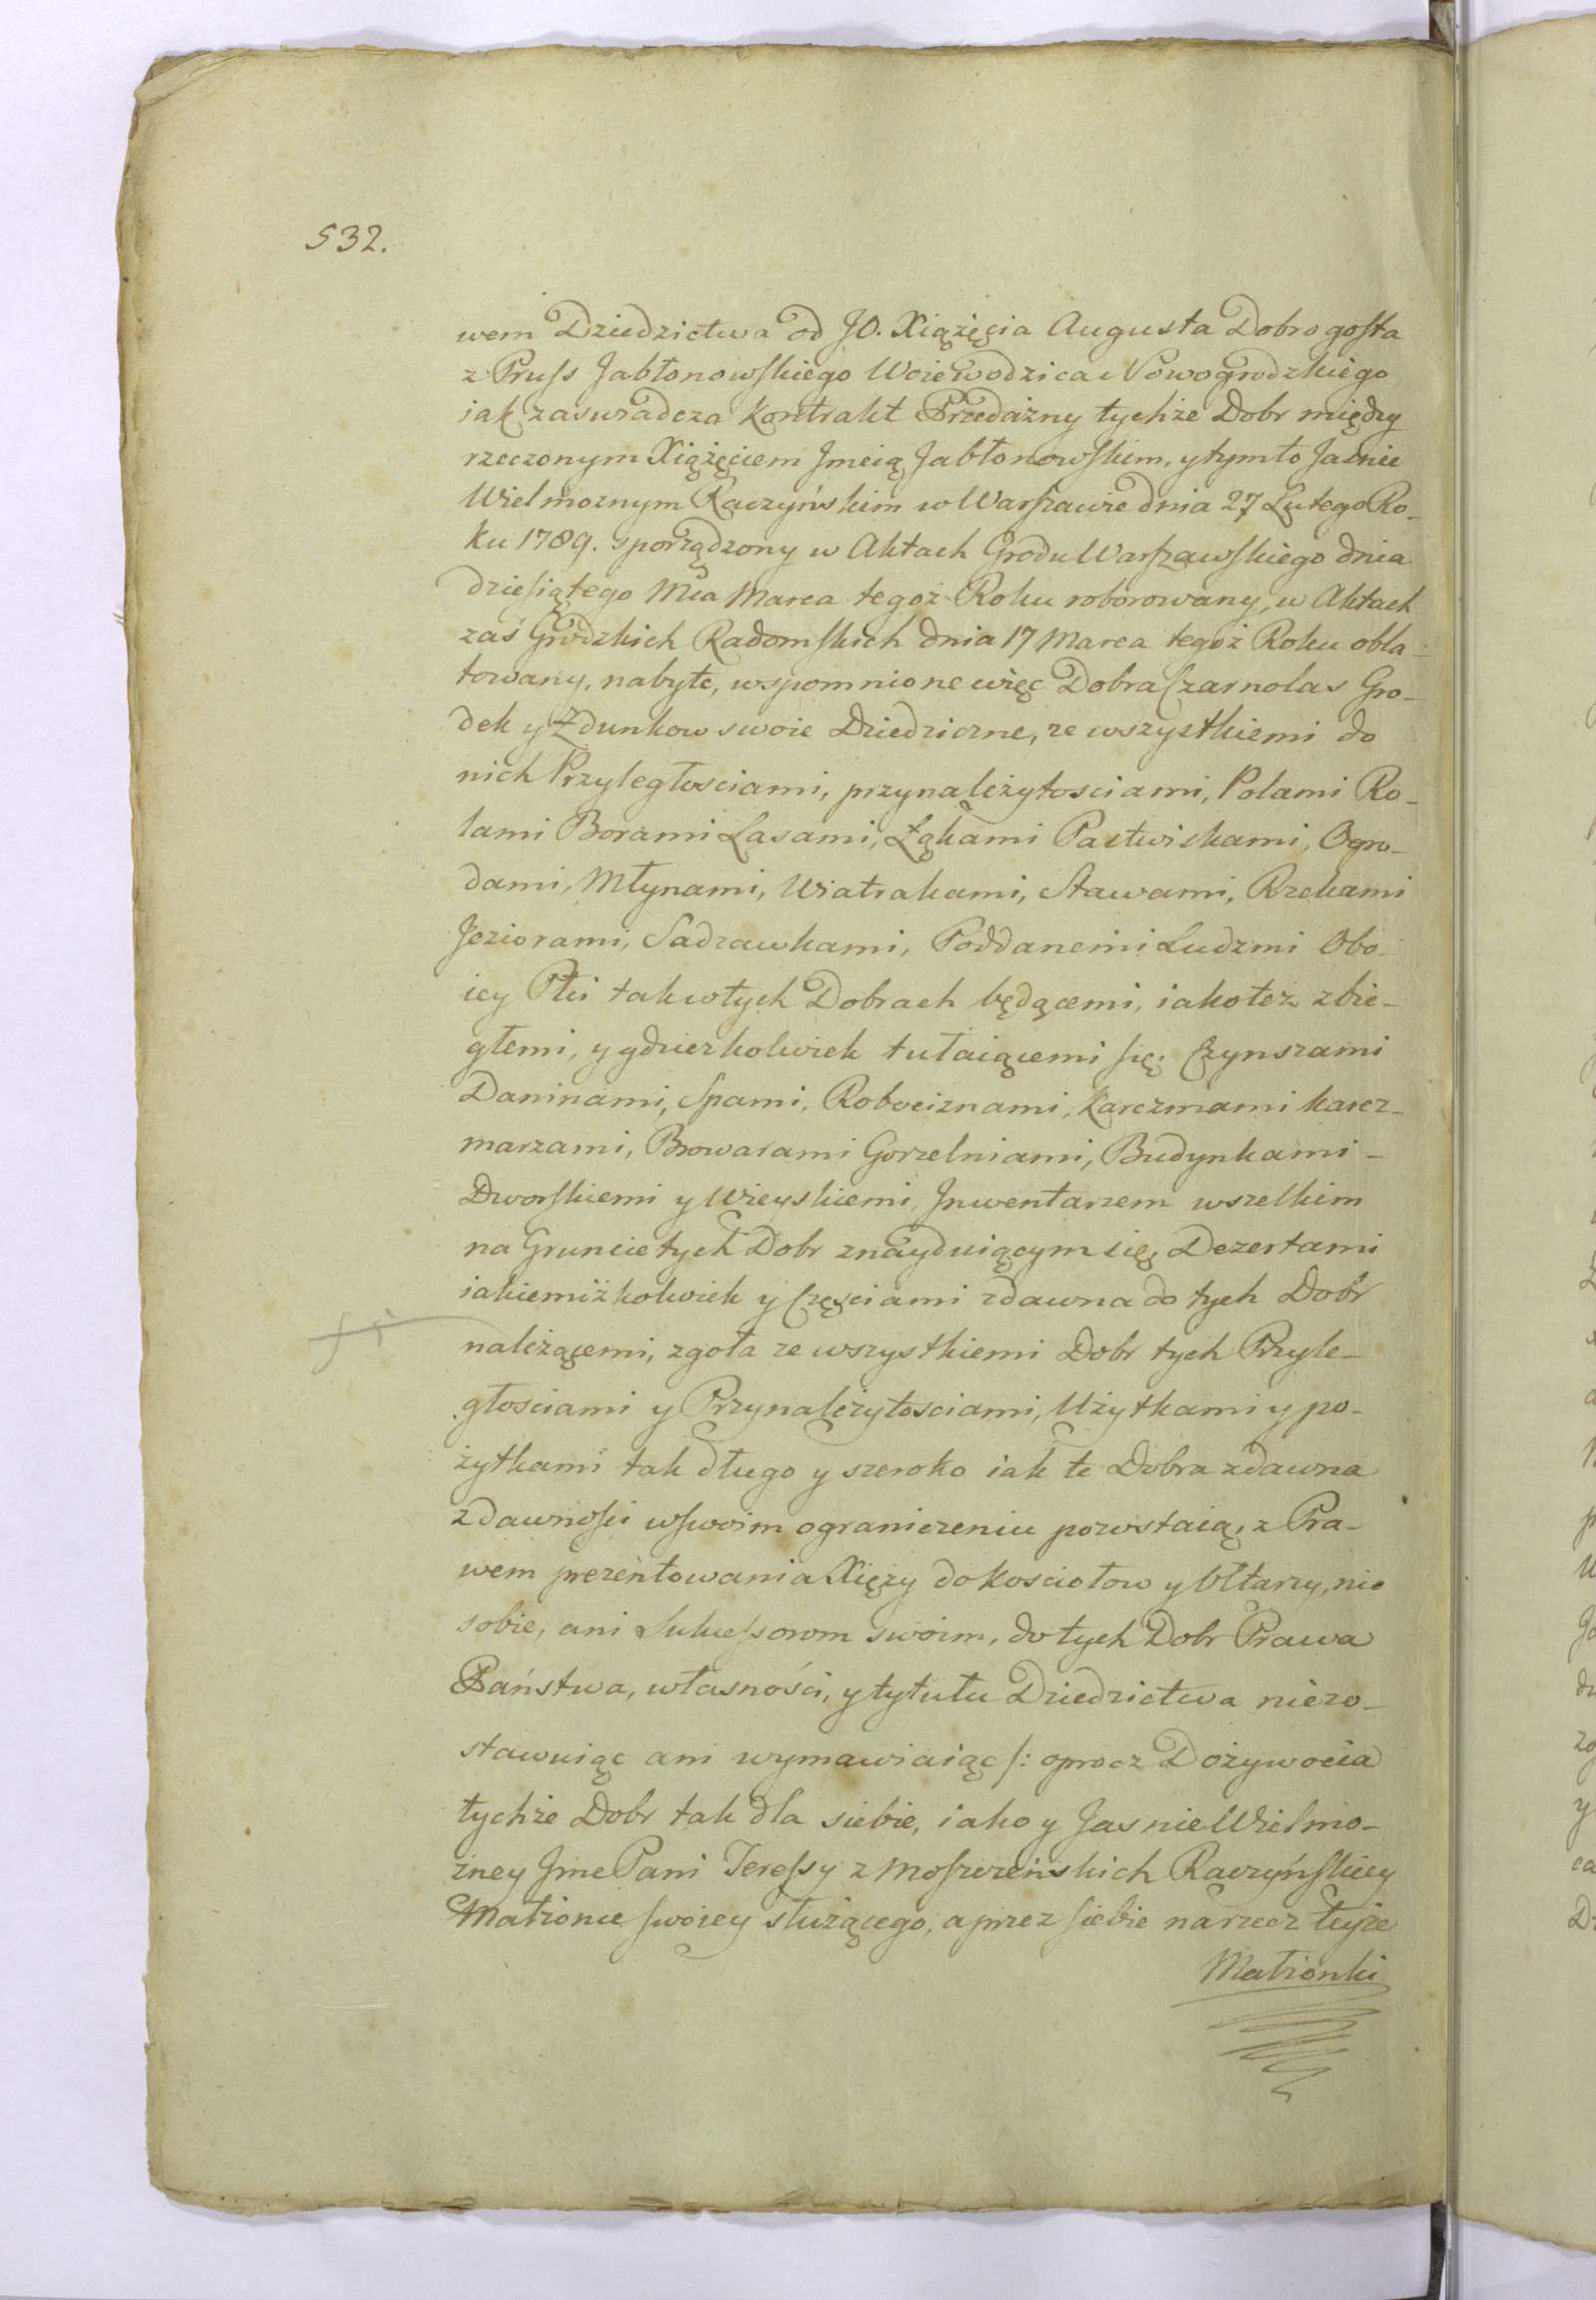 532.
wem Dziedzictwa od JO. Xiążęcia Augusta Dobrogosta
z Pruss Jabłonowskiego Woiewodzica Nowogrodzkiego
iak zaswadcza Kontrakt Przedażny tychże Dobr między
rzeczonym Xiążęciem Jmcią Jabłonowskim, y tymto Jasnie
Wielmoznym Raczyńskim w Warszawie dnia 27 Lutego Ro-
ku 1789. sporządzony w Aktach Grodu Warszawskiego dnia
dziesiątego Mca Marca tegoż Roku roborowany, w Aktach
zaś Grodzkich Radomskich dnia 17 Marca tegoż Roku obla-
towany, nabyte, wspomnione więc Dobra Czarnolas Gro-
dek y Zdunkow swoie Dziedziczne, ze wszystkiemi do
nich Przyległosciami, przynależytosciami, Polami Ro-
lami Borami Lasami, Łąkami Pastwiskami, Ogro-
dami, Młynami, Wiatrakami, Stawami, Rzekami
Jeziorami, Sadzawkami, Poddanemi Ludzmi Obo-
iey Płci tak w tych Dobrach będącemi, iako też zbie-
głemi, y gdzieżkolwiek tułaiącemi się; Czynszami
Daninami, Spami, Robociznami, Karczmami karcz-
marzami, Browarami Gorzelniami, Budynkami -
Dworskiemi y Wieyskiemi, Jnwentarzem wszelkim
na Gruncie tych Dobr znayduiącym się, Dezertami
iakiemiżkolwiek y Częsciami zdawna do tych Dobr
należącemi, zgoła ze wszystkiemi Dobr tych Przyle-
głosciami y Przynależytosciami, Użytkami y po-
żytkami tak długo y szeroko iak te Dobra zdawna
z dawności w swoim ograniczeniu pozostaią, z Pra-
wem prezentowania Xięży do kosciołow y Ołtarzy, nic
sobie, ani Sukcessorom swoim, do tych Dobr Prawa
Państwa, własności, y tytułu Dziedzictwa niezo-
stawuiąc ani wymawiaiąc /: oprocz Dożywocia
tychże Dobr tak dla siebie, iako y Jasnie Wielmo-
żney Jmc Pani Teressy z Moszczeńskich Raczyńskiey
Małżonce swoiey służącego, a przez siebie na rzecz teyże
Małżonki